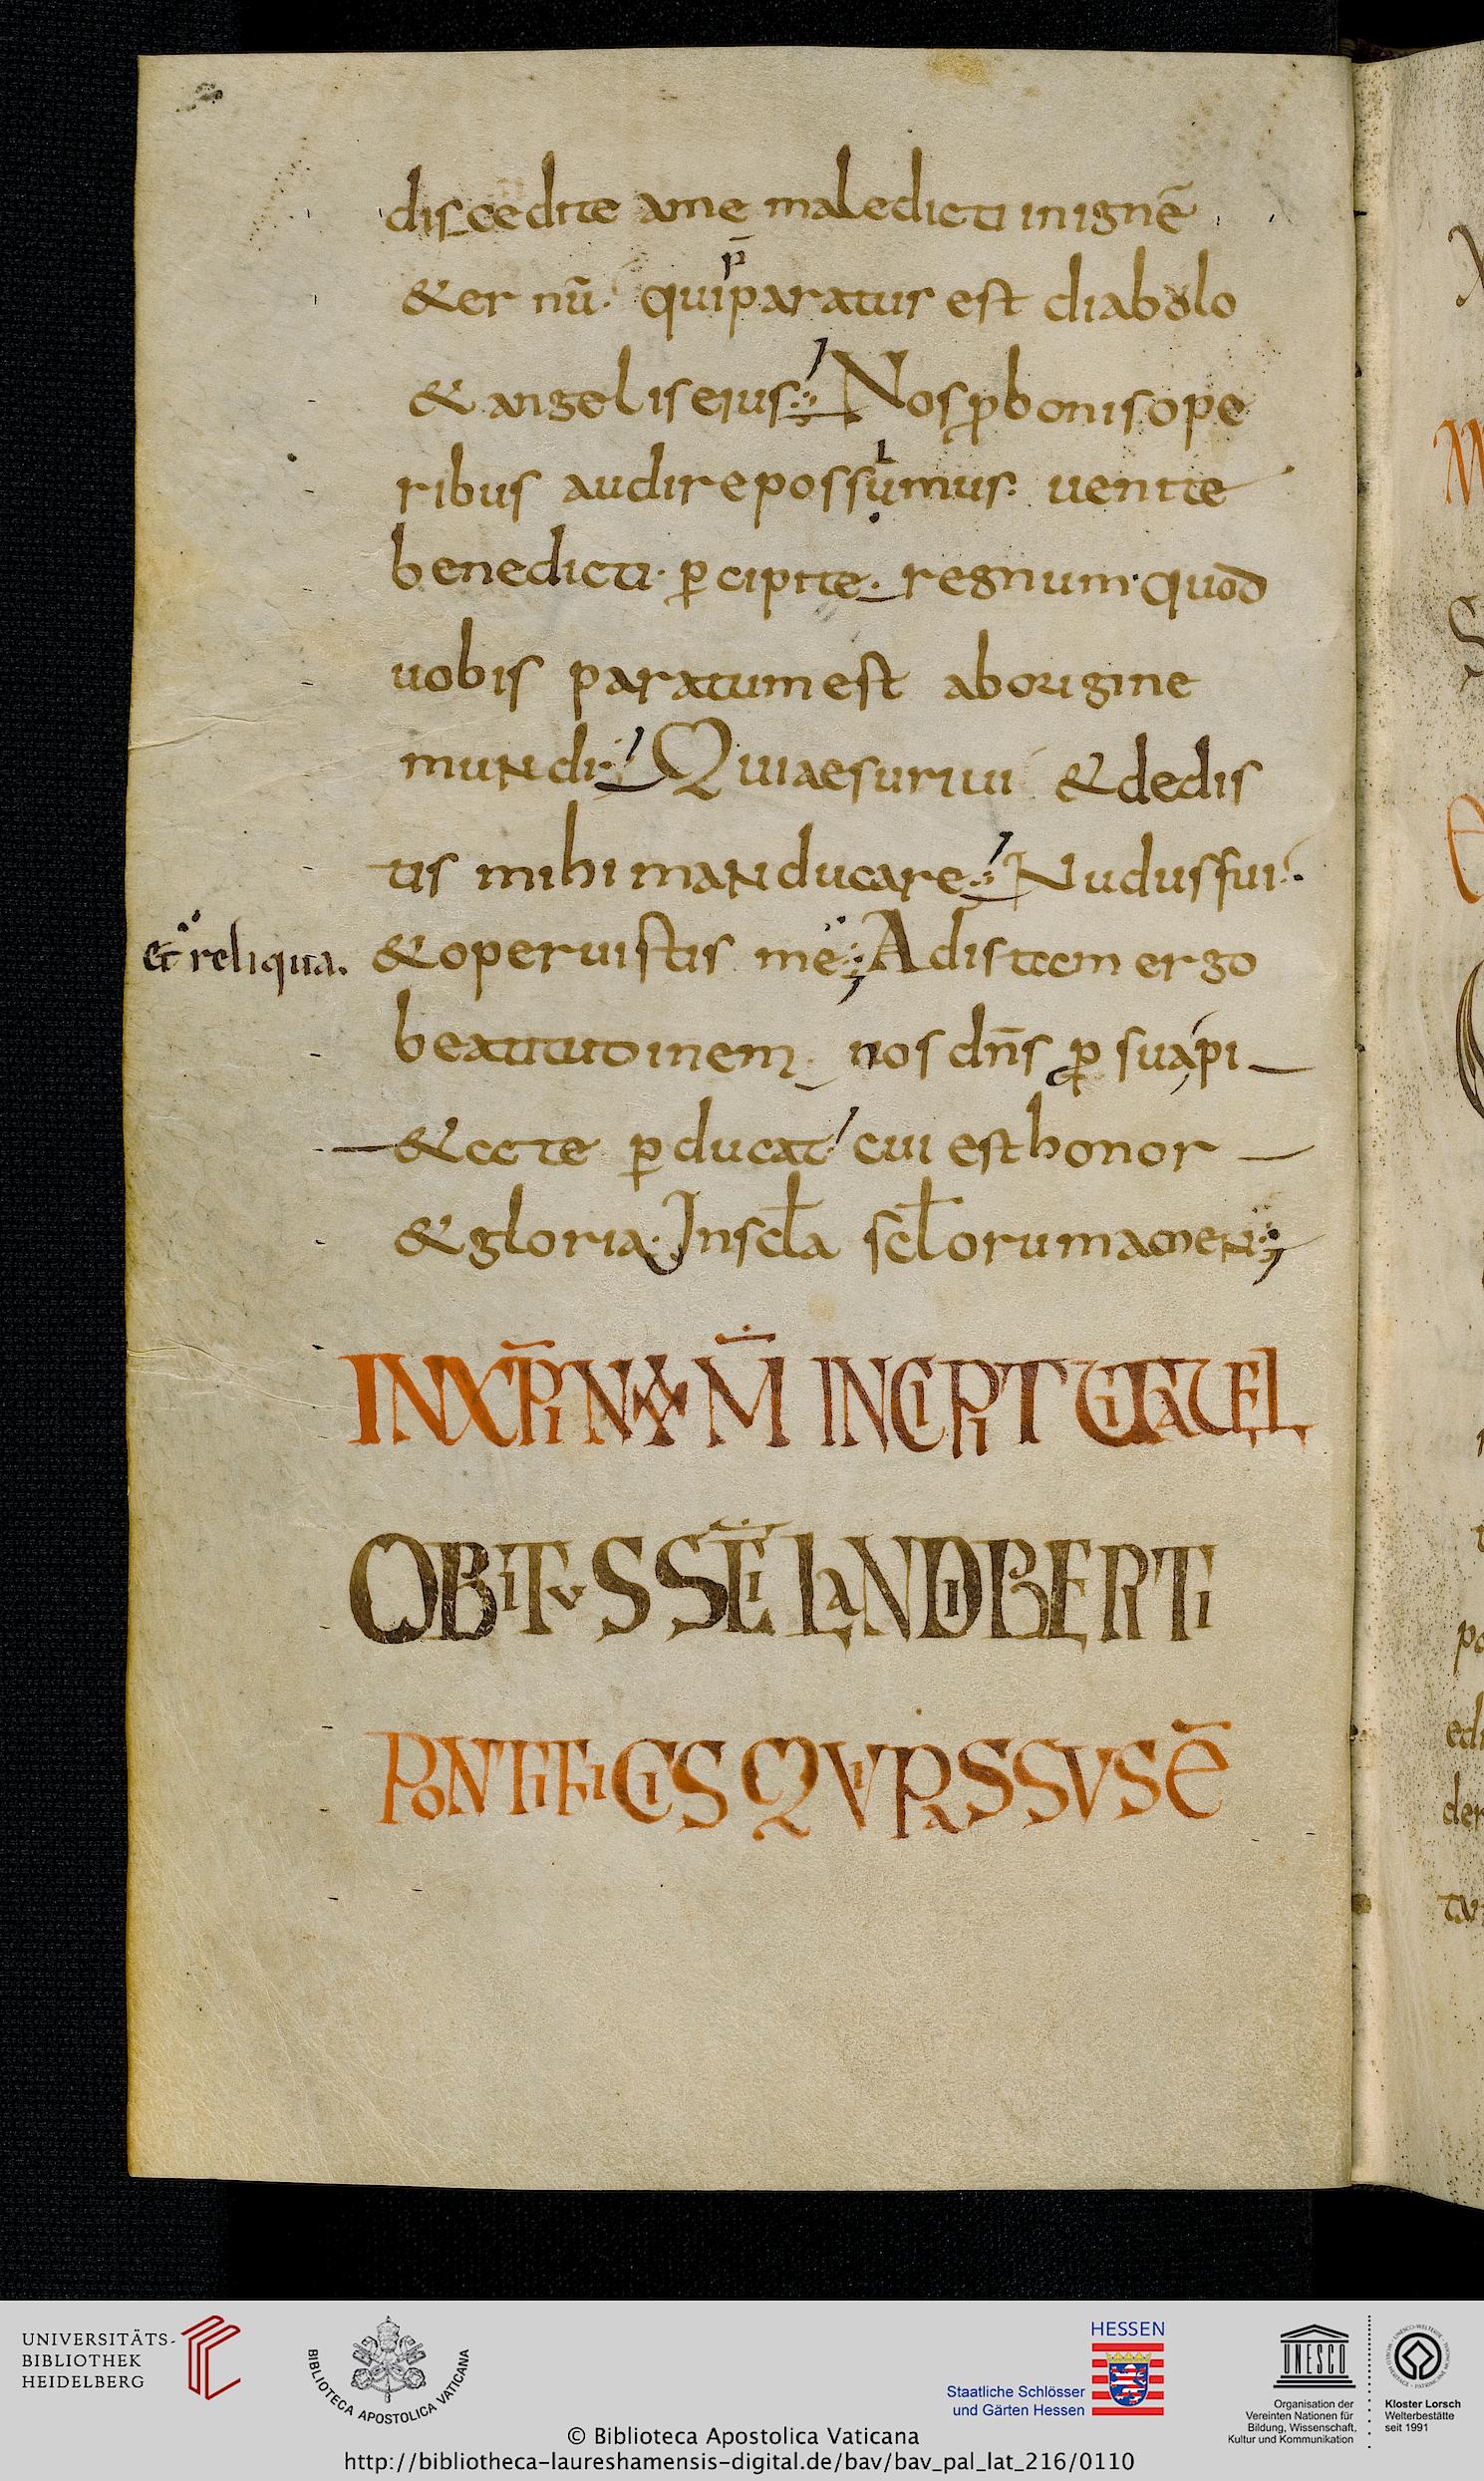 discedite a me maledicti in ignē
& er nū. qui p̄paratus est diabolo
& angelis eius. Nos ꝓ bonis ope
ribus audire possumus. uenite
benedicti. ꝑcipite. regnum. quod
uobis paratum est ab origine
mundi. Quia esuriui & dedis
tis mihi manducare. Nudus fui.
et reliqua. & operuistis me; Ad istam ergo
beatitudinem. nos dn̄s ꝑ sua pi
&ate ꝑducat cui est honor
& gloria. In scl̄a scl̄orum amen;
IN XP̄I NOM̄ INCIPIT UITA UEL
OBITUS SC̄I LANDIBERTI
PONTIFICIS QUI PASSUS ē
UNIVERSITÄTS-
BIBLIOTHEK
HEIDELBERG
BIBLIOTECA APOSTOLICA VATICANA
HESSEN
Staatliche Schlösser
und Gärten Hessen
UNESCO
Organisation der
Vereinten Nationen für
Bildung, Wissenschaft,
Kultur und Kommunikation
Kloster Lorsch
Welterbestätte
seit 1991
© Biblioteca Apostolica Vaticana
http://bibliotheca-laureshamensis-digital.de/bav/bav_pal_lat_216/0110